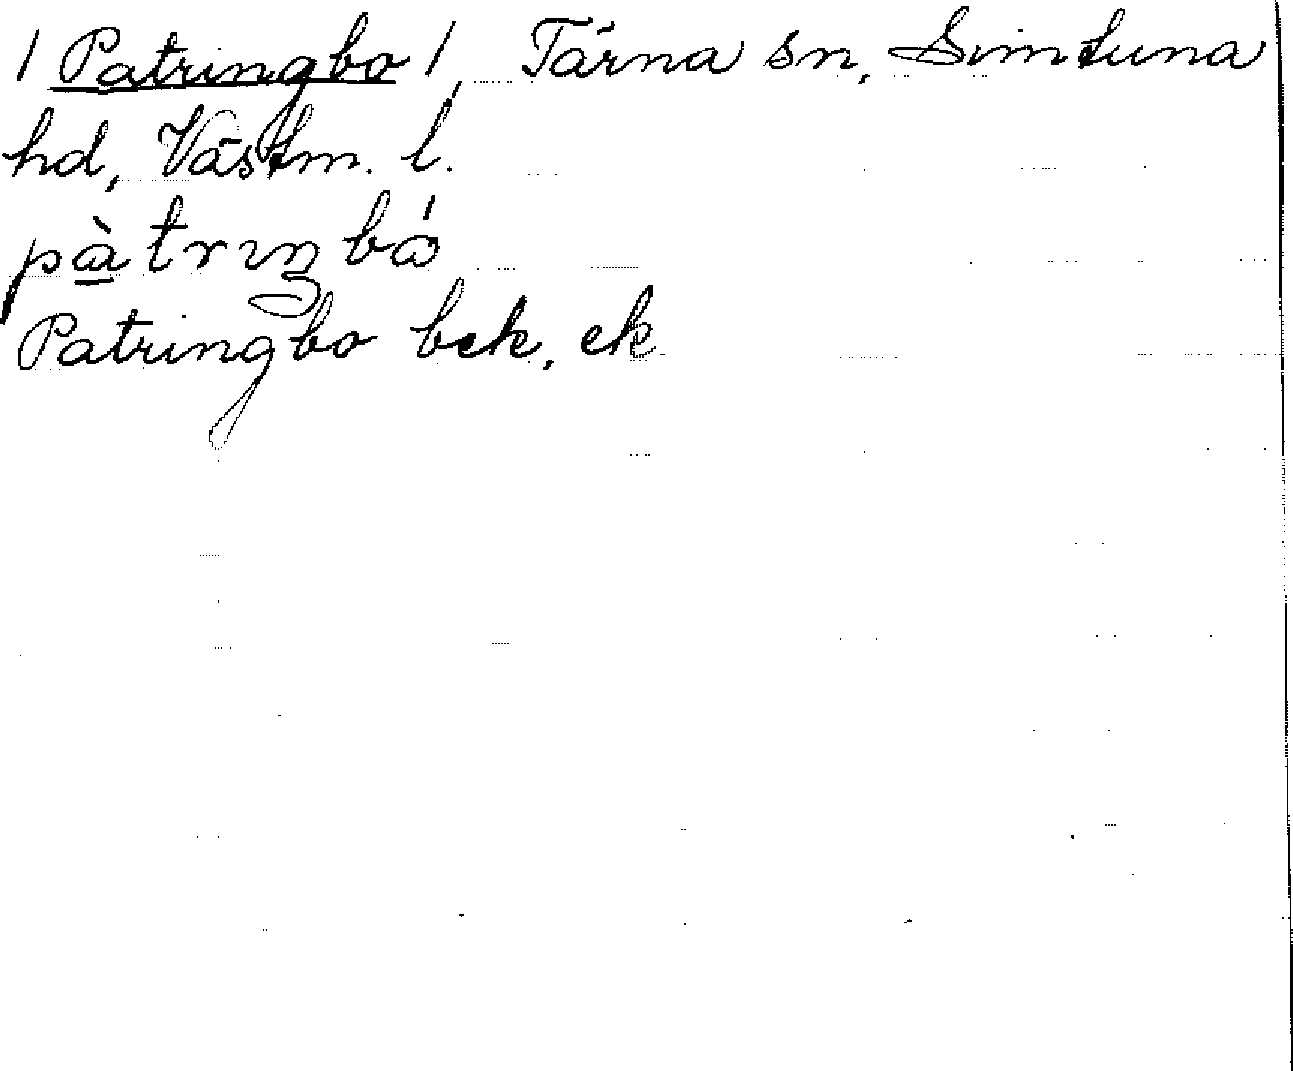 / Patringbo /, Tärna sn, Simtuna
hd, Västm. l.
pàtrıŋbó
Patringbo bek, ek